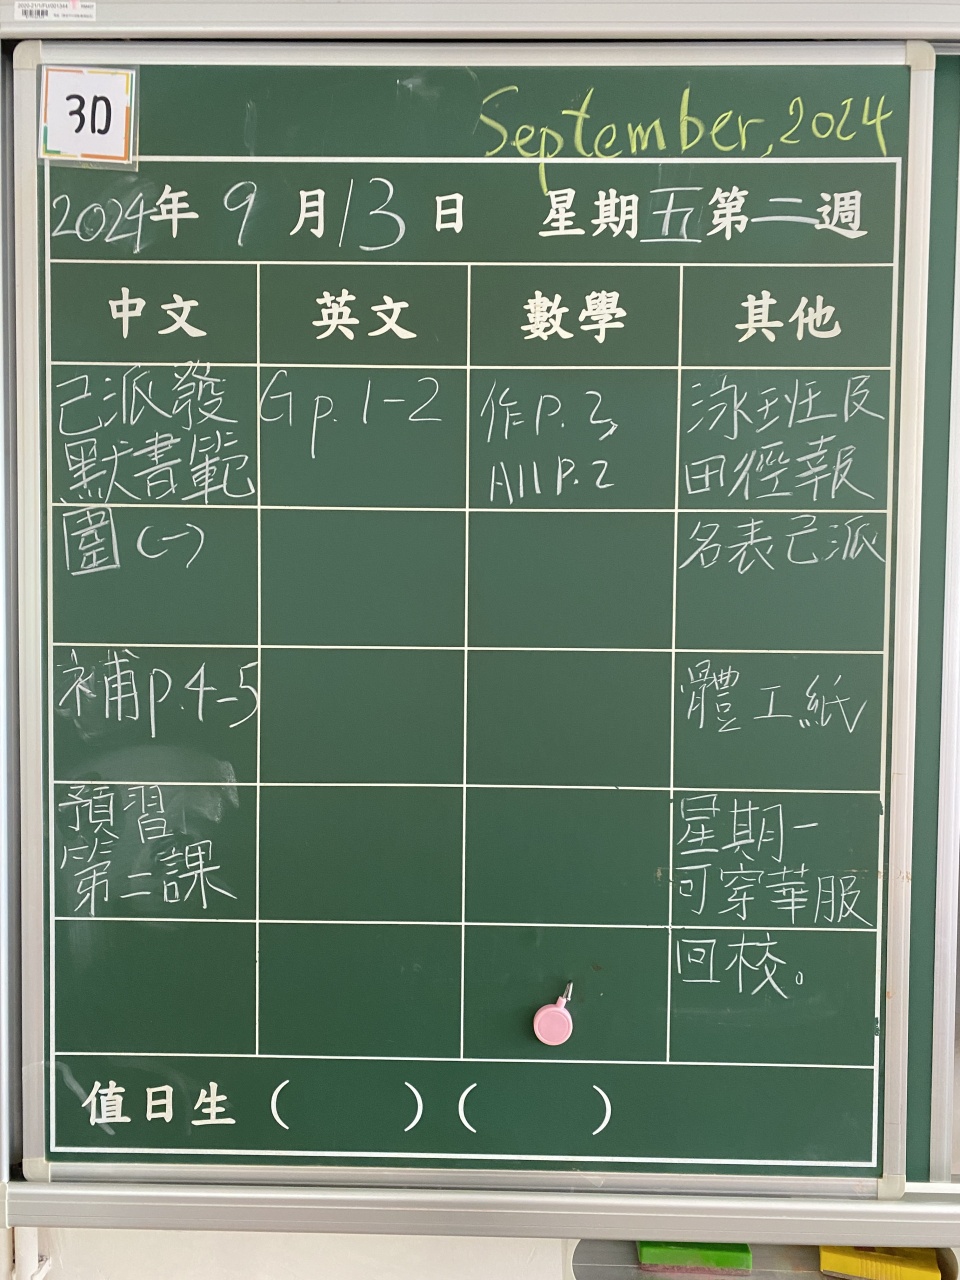 3D
September, 2024
2024年 9 月 13 日 星期五第二週
中文 英文 數學 其他
已派發
默書範
圍(一)
補p.4-5
預習
第二課
G p. 1-2
作P. 3
A11 P.2
泳班及
田徑報
名表已派
體工紙
星期一
可穿華服
回校。
值日生 ( ) ( )